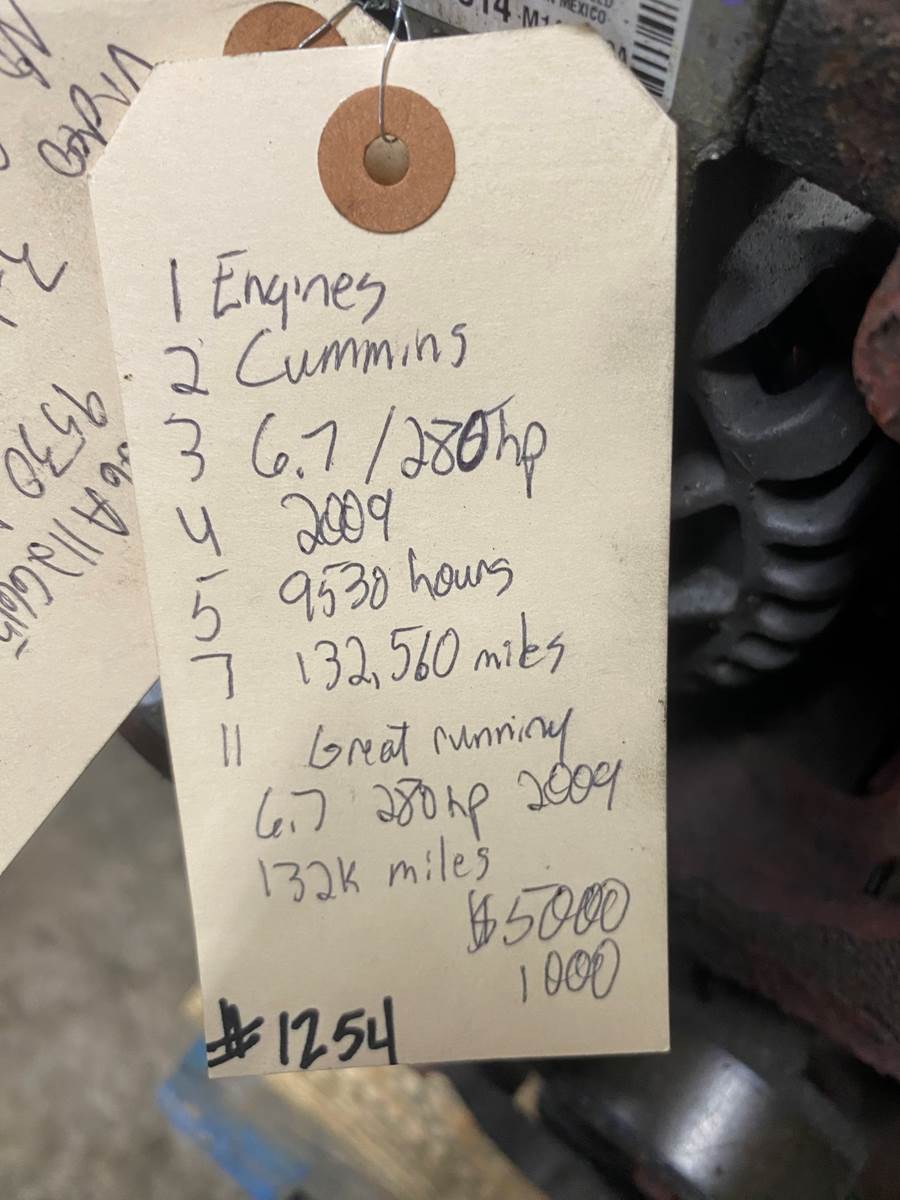 MEXICO
1 Engines
2 Cummins
3 6.7 / 280hp
4 2009
5 9530 hours
7 132,560 miles
11 Great running
6.7 280hp 2009
132K miles
$5000
1000
#1254
Video
9530